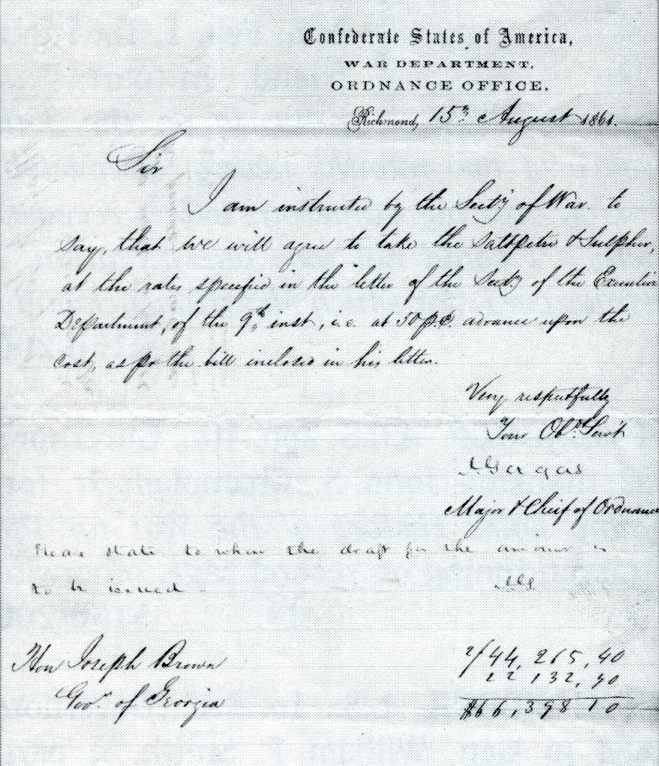 Confederate States of America,
WAR DEPARTMENT.
ORDNANCE OFFICE.
Richmond, 15th August 1861.
Sir
I am instructed by the Secty of War to
say, that we will agree to take the Saltpetre & Sulpher,
at the rates specified in the letter of the Secty of the Executive
Department, of the 9th inst, i.e. at 50 p.c. advance upon the
cost, as pr the bill inclosed in his letter.
Very respectfully
Your Obt Servt
J Gorgas
Major & Chief of Ordnance
Pleas state to whom the draft for the amount is
to be issued
JG
Hon Joseph Brown
Govr of Georgia
2/44,265,40
22 132,70
$66,398 10